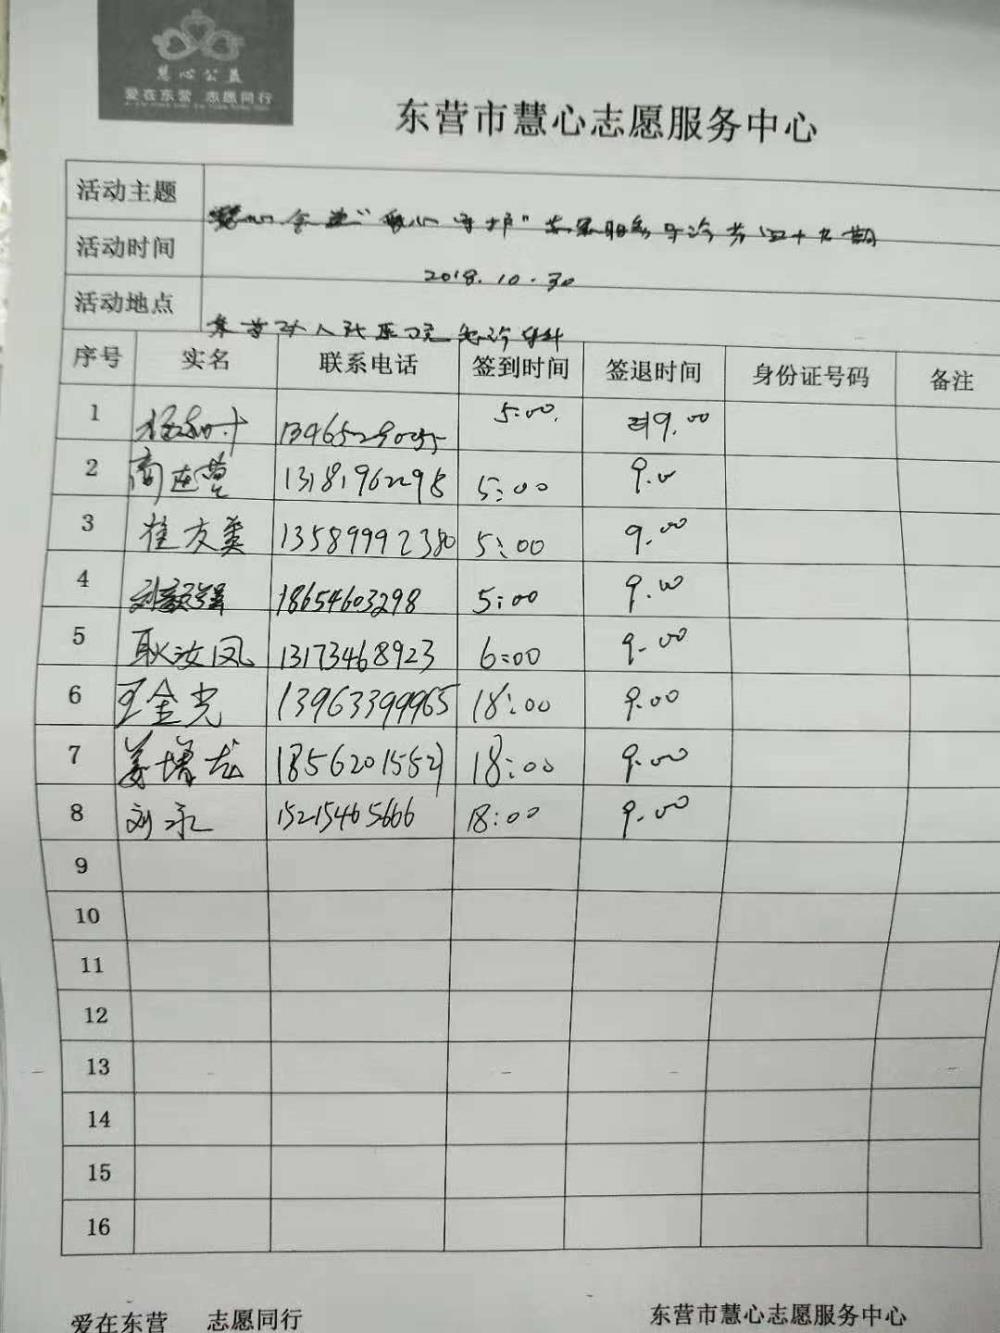 慧心公益
爱在东营 志愿同行
东营市慧心志愿服务中心
活动主题 慧心公益"爱心守护"志愿服务导诊第四十九期
活动时间 2018.10.30
活动地点 东营市人民医院急诊科
序号 实名 联系电话 签到时间 签退时间 身份证号码 备注
1 5:00. 9.00
2 商连营 13181962298 5:00 9.00
3 崔友英 13589992380 5:00 9.00
4 刘毅强 18654603298 5:00 9.00
5 耿汝凤 13173468923 6:00 9.00
6 王金光 13963399965 18:00 9.00
7 姜增龙 18562015521 18:00 9.00
8 刘永 15215465666 18:00 9.00
9
10
11
12
13
14
15
16
爱在东营 志愿同行 东营市慧心志愿服务中心